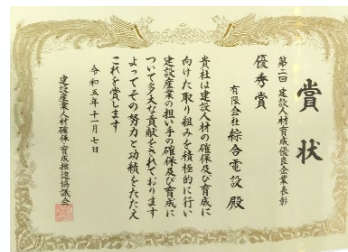 賞状
第二回 建設人材育成優良企業表彰
優秀賞
有限会社 綜合電設 殿
貴社は建設人材の確保及び育成に
向けた取り組みを積極的に行い
建設産業の担い手の確保及び育成に
ついて多大な貢献をされております
よってその努力と功績をたたえ
これを賞します
令和五年十一月七日
建設産業人材確保・育成推進協議会